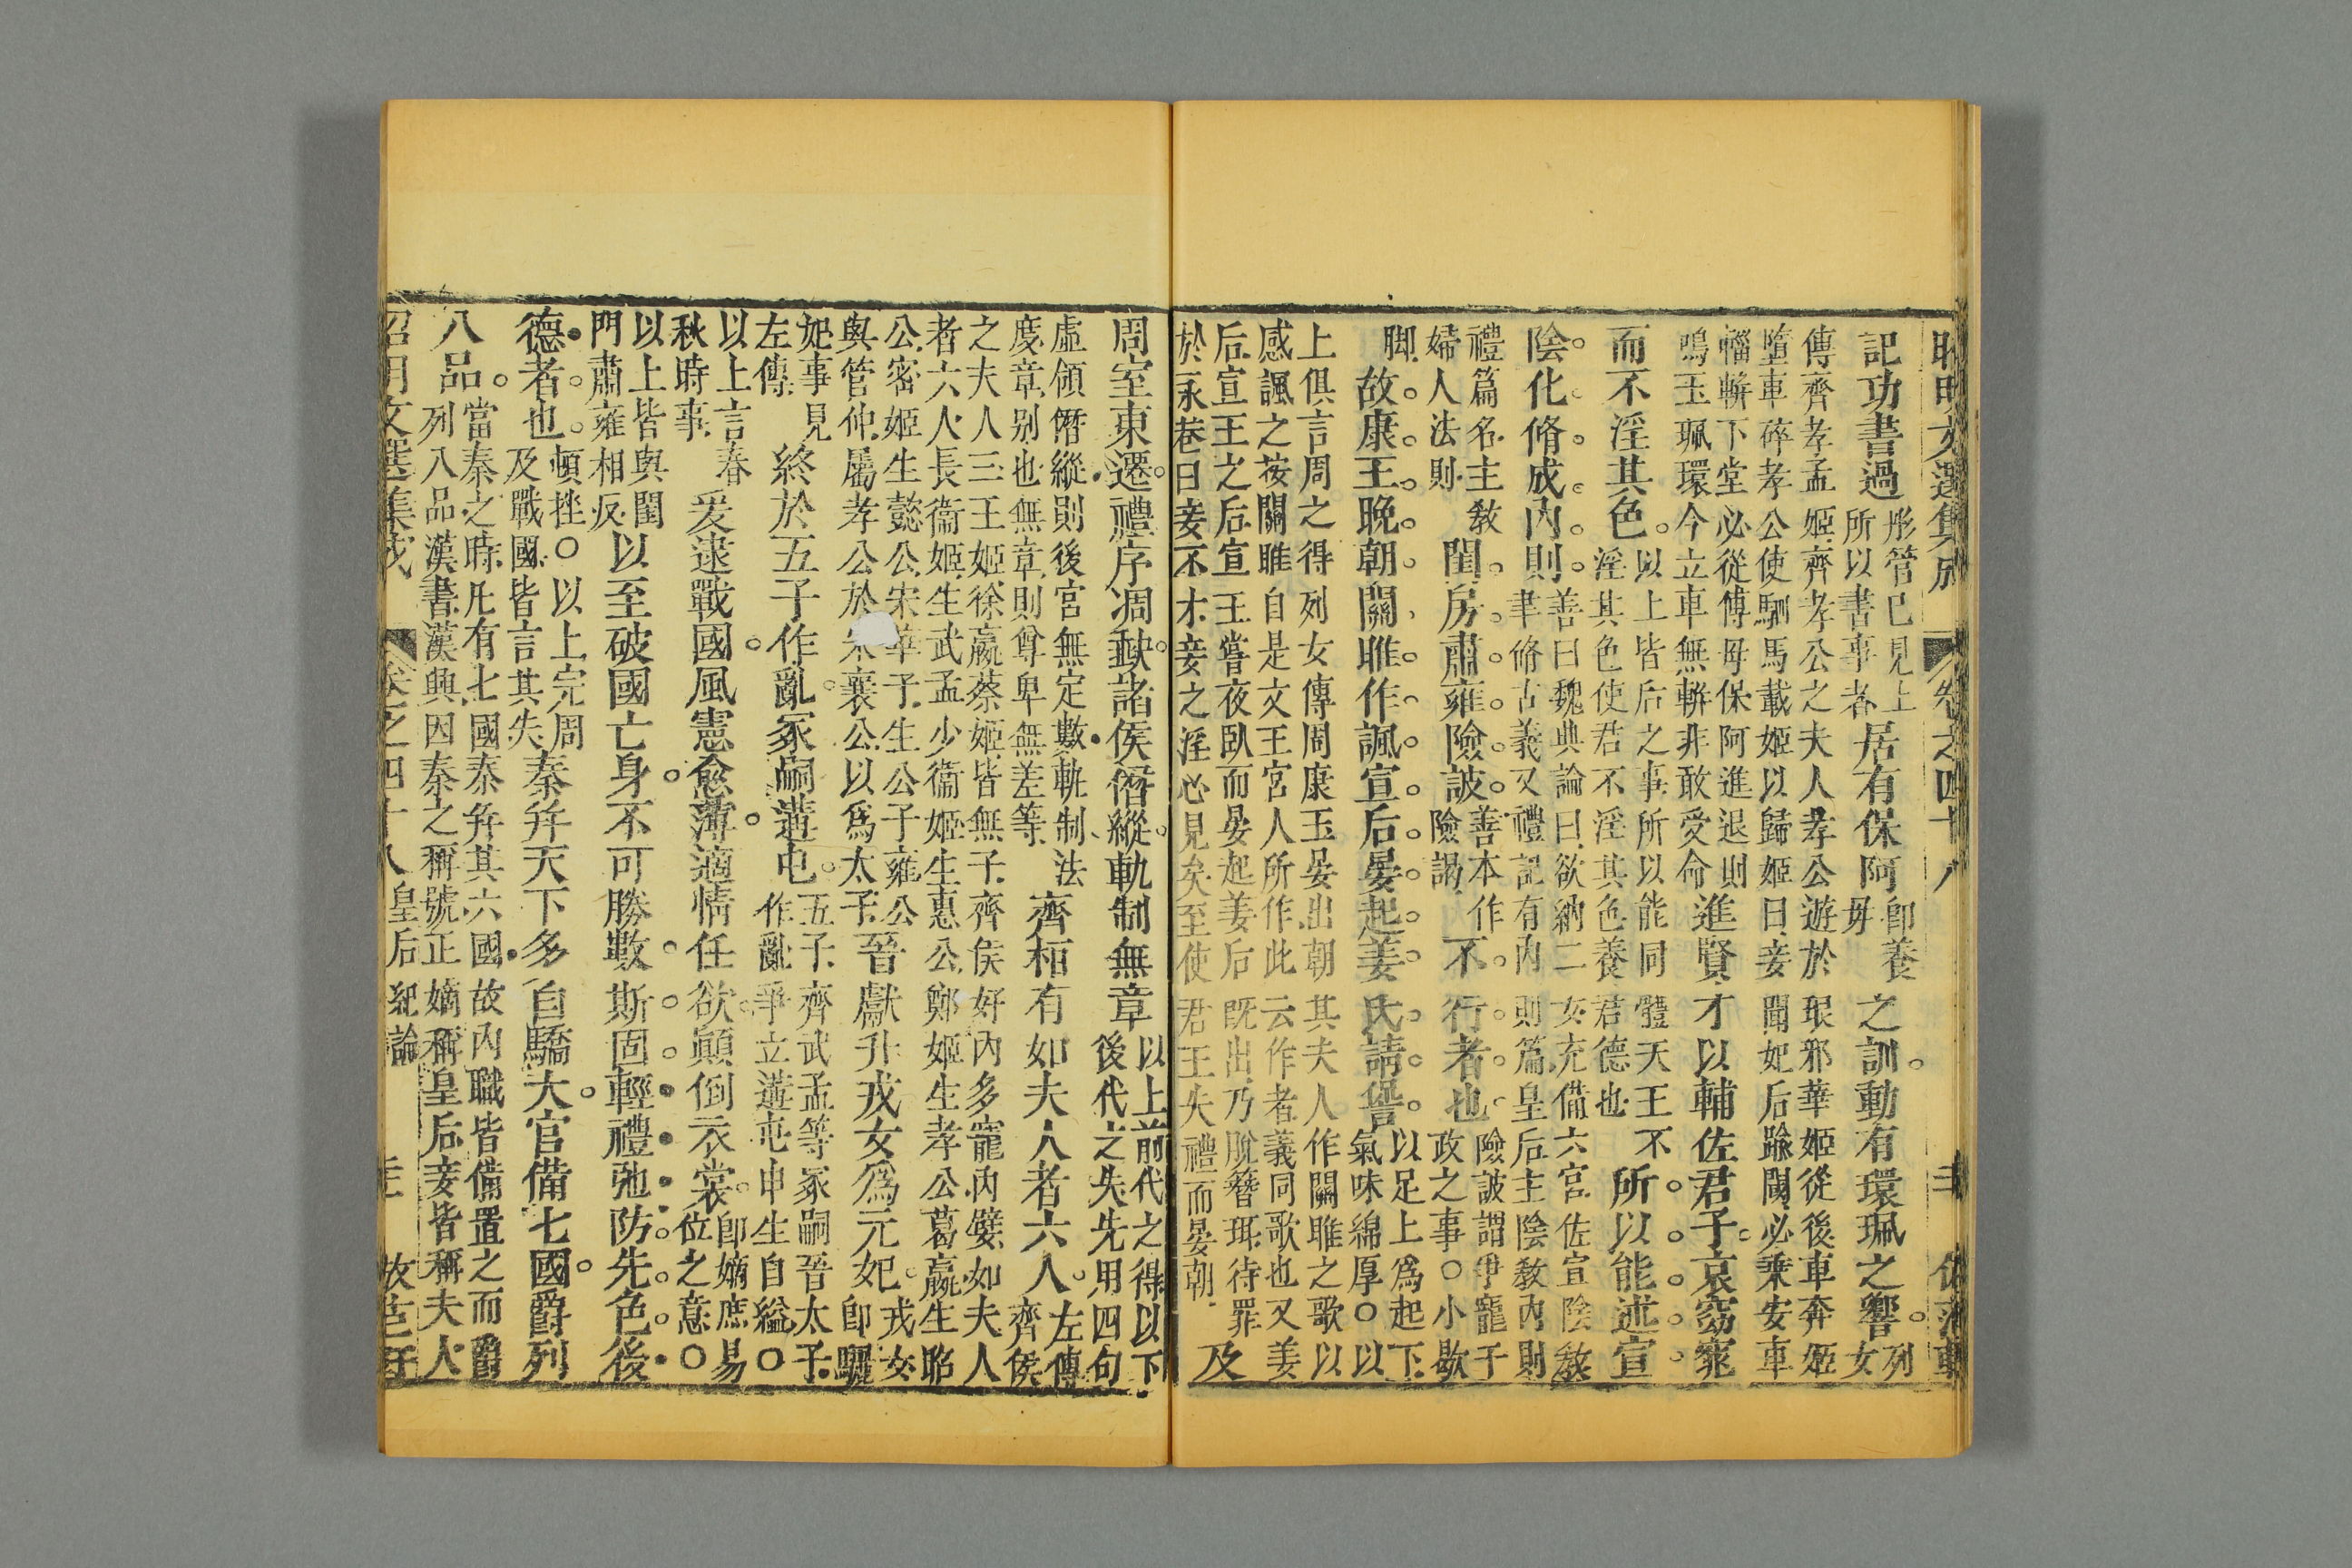 昭明文選集成 卷之四十八
記功書過彤管已見上所以書事者居有保阿卽養毋之訓動有環珮之響列女
傳齊孝孟姬齊孝公之夫人孝公遊於琅邪華姬從後車奔姬
墮車碎孝公使駟馬載姬以歸姬曰妾聞妃后踰閾必乘安車
輜軿下堂必從傅毋保阿進退則
鳴玉珮環今立車無軿非敢受命進賢才以輔佐君子哀窈窕
而不淫其色以上皆后之事所以能同體天王不淫其色使君不淫其色養君德也所以能述宣
陰化脩成內則善曰魏典論曰欲納二女充備六宮佐宣陰敎聿脩古義又禮記有內則篇皇后主陰敎內則
禮篇名主敎婦人法則閨房肅雍險詖善本作險謁不行者也險詖謂爭寵于政之事〇小歇
脚故康王晚朝關雎作諷宣后晏起姜氏請愆以足上爲起下氣味綿厚〇以
上俱言周之得列女傳周康王晏出朝其夫人作關雎之歌以
感諷之按關雎自是文王宮人所作此云作者義同歌也又姜
后宣王之后宣王嘗夜臥而晏起姜后既出乃脫簪珥待罪
於永巷曰妾不才妾之淫心見矣至使君王失禮而晏朝及
周室東遷禮序凋缺諸侯僭縱軌制無章以上前代之得以下後代之失先用四句
虛領僭縱則後宮無定數軌制法
度章別也無章則尊卑無差等齊桓有如夫人者六人左傳齊侯
之夫人三王姬徐嬴蔡姬皆無子齊侯好內多寵內嬖如夫人
者六人長衞姬生武孟少衞姬生惠公鄭姬生孝公葛嬴生昭
公密姬生懿公宋華子生公子雍公
與管仲屬孝公於宋襄公以爲太子晉獻升戎女爲元妃戎女卽驪
妃事見左傳終於五子作亂冢嗣遘屯五子齊武孟等冢嗣晉太子作亂爭立遘屯申生自縊〇
以上言春秋時事爰逮戰國風憲愈薄適情任欲顛倒衣裳卽嫡庶易位之意〇
以上皆與閨門肅雍相反以至破國亡身不可勝數斯固輕禮弛防先色後
德者也頓挫〇以上完周及戰國皆言其失秦幷天下多自驕大官備七國爵列
八品當秦之時凡有七國秦幷其六國故內職皆備置之而爵列八品漢書漢興因秦之稱號正嫡稱皇后妾皆稱夫人
昭明文選集成 卷之四十八 皇后紀論